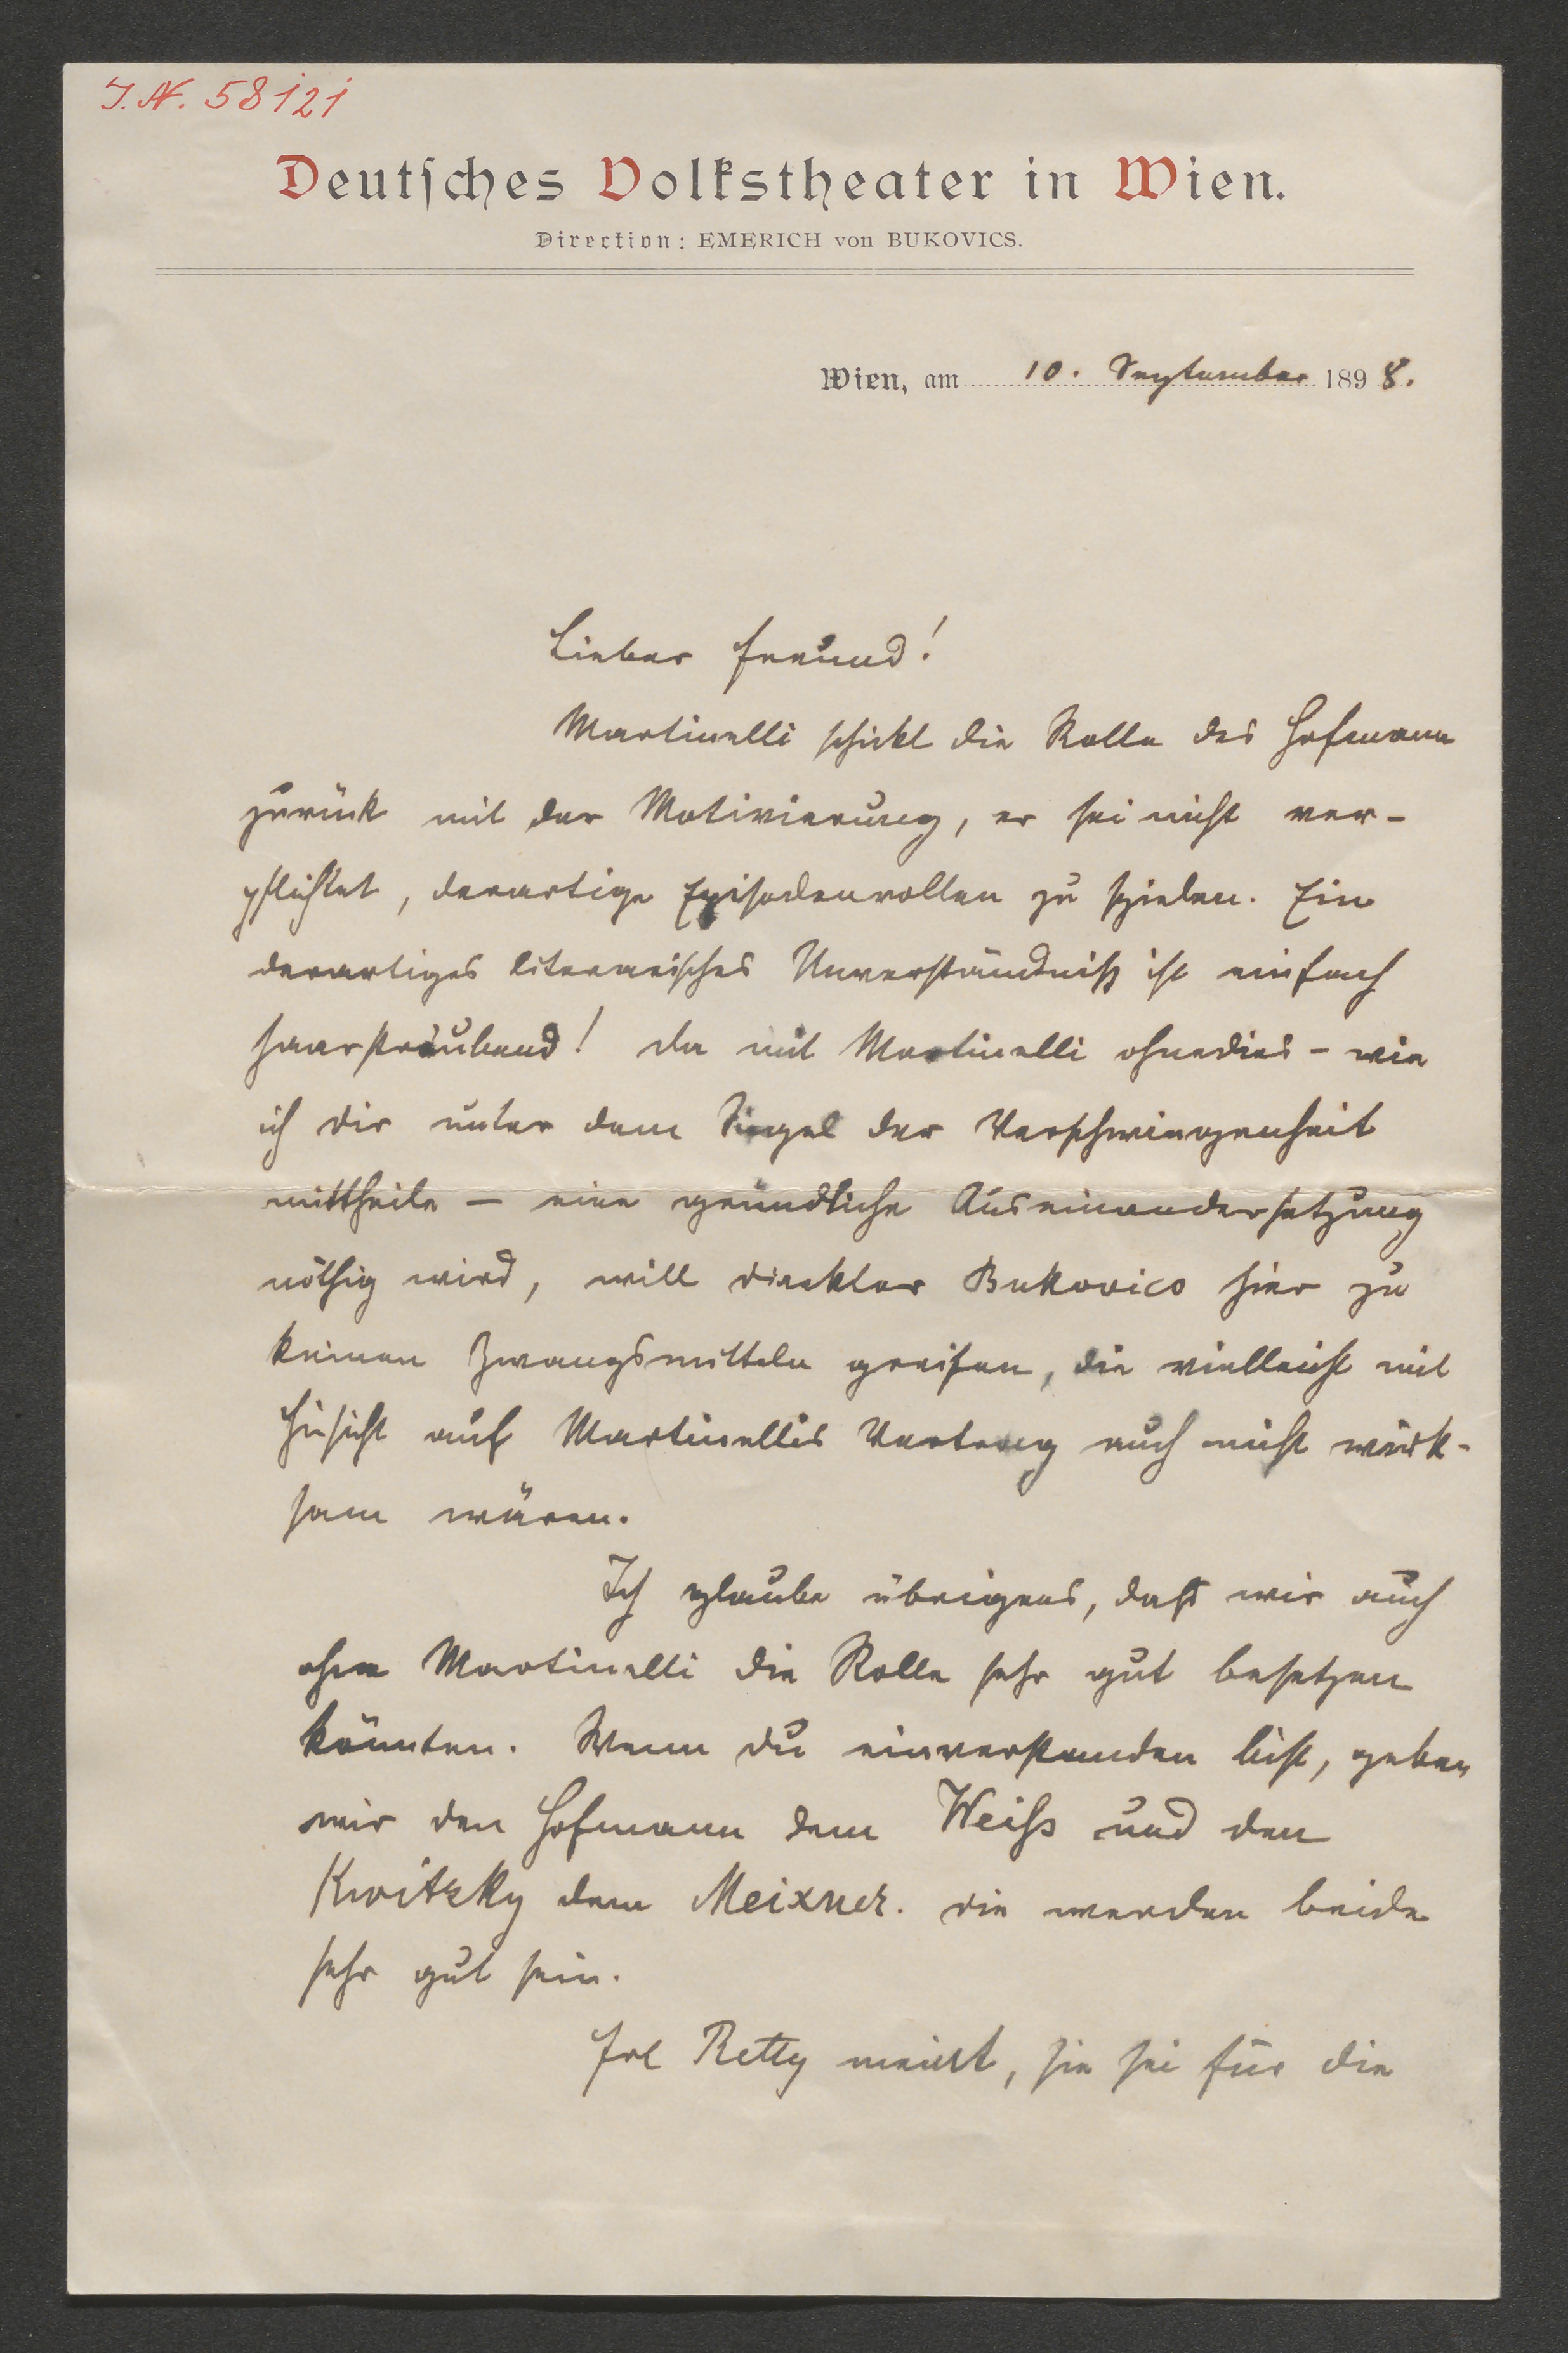 I. N. 58121
Deutsches Volkstheater in Wien.
Direction: EMERICH von BUKOVICS.
Wien, am 10. September 1898.
Lieber Freund!
Martinelli schickt die Rolle des Hofmann
zurück mit der Motivierung, er sei nicht ver-
pflichtet, derartige Episodenrollen zu spielen. Ein
derartiges literarisches Unverständniß ist einfach
haarsträubend! Da mit Martinelli ohnedies – wie
ich Dir unter dem Siegel der Verschwiegenheit
mittheile – eine gründliche Auseinandersetzung
nöthig wird, will Direktor Bukovics hier zu
keinen Zwangsmitteln greifen, die vielleicht mit
Hinsicht auf Martinellis Vertrag auch nicht wirk-
sam wären.
Ich glaube übrigens, daß wir auch
ohne Martinelli die Rolle sehr gut besetzen
könnten. Wenn Du einverstanden bist, geben
wir den Hofmann dem Weiss und den
Kwitzky dem Meixner. Die werden beide
sehr gut sein.
Frl Retty meint, sie sei für die